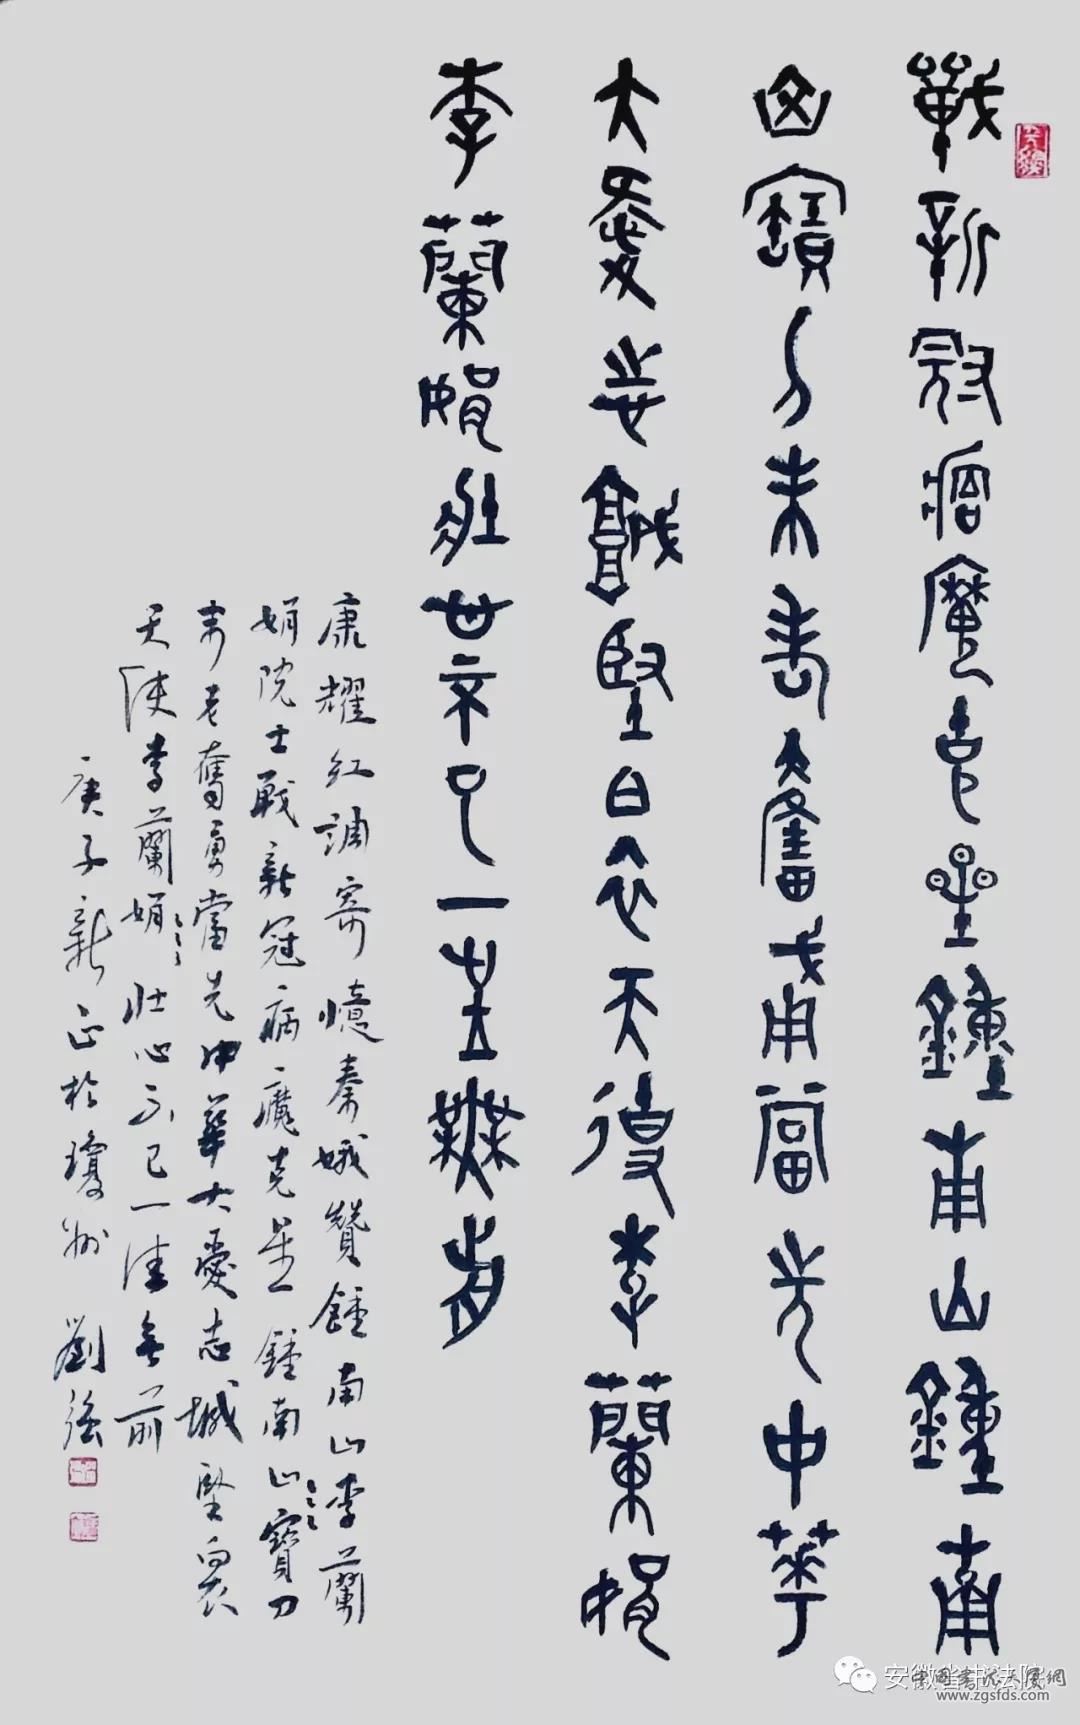 戰新冠病魔克星鍾南山鍾南
山寶刀未老奮勇當先中華
大愛志城堅白衣天使李蘭娟
李蘭娟壯心不已一往無前
康耀紅調寄憶秦娥贊鍾南山李蘭
娟院士戰新冠病魔克星鍾南山寶刀
未老奮勇當先中華大愛志城堅白衣
天使李蘭娟壯心不已一往無前
庚子新正於瓊州 劉強
安徽省书法院
中国书法大厦網
www.zgsfds.com